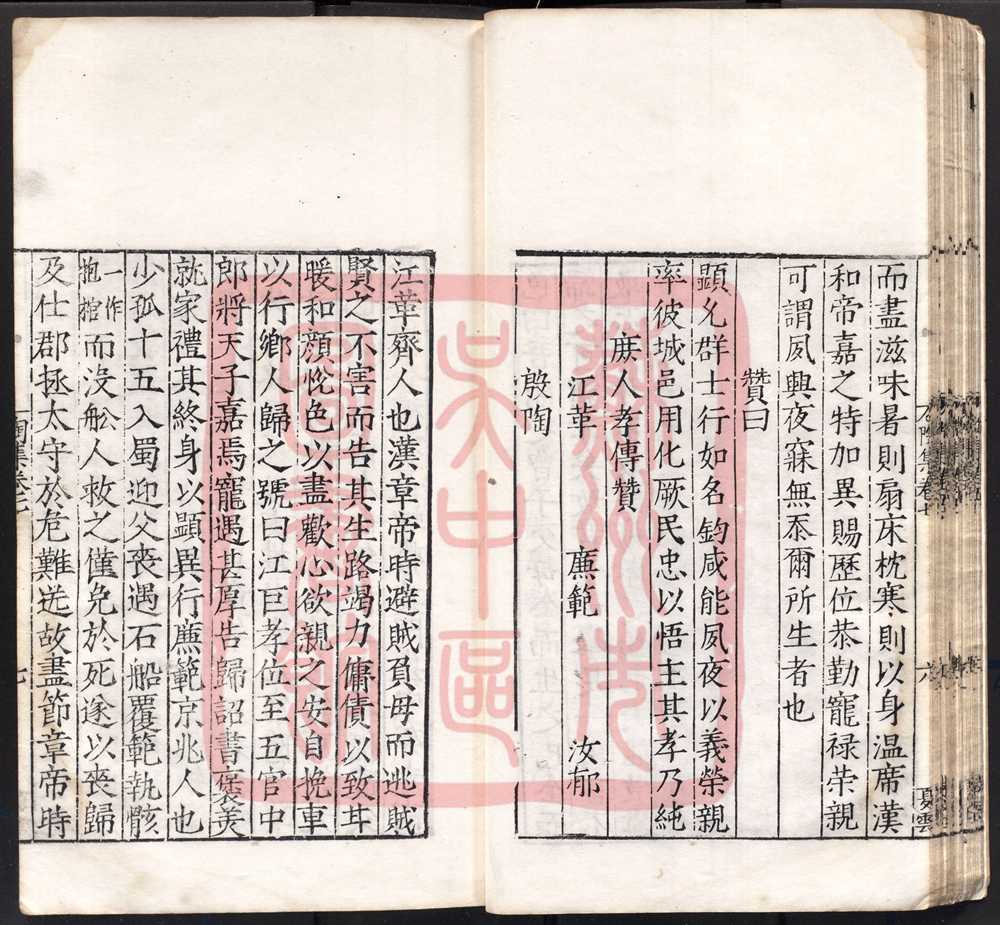 而盡滋味暑則扇床枕寒則以身温席漢
和帝嘉之特加異賜歷位恭勤寵禄榮親
可謂夙興夜寐無忝爾所生者也
贊曰
顯允群士行如名鈞咸能夙夜以義榮親
率彼城邑用化厥民忠以悟主其孝乃純
庶人孝傳贊
江革 廉範 汝郁
殷陶
六
夏雲
江革齊人也漢章帝時避賊負母而逃賊
賢之不害而告其生路竭力傭債以致其
暖和顔恱色以盡歡心欲親之安自挽車
以行鄉人歸之號曰江巨孝位至五官中
郎將天子嘉焉寵遇甚厚告歸詔書褒美
就家禮其終身以顯異行廉範京兆人也
少孤十五入蜀迎父喪遇石船覆範執骸
一作抱棺而没船人救之僅免於死遂以喪歸
及仕郡拯太守於危難送故盡節章帝時
陶集卷七
七
蘇州市
吳中區